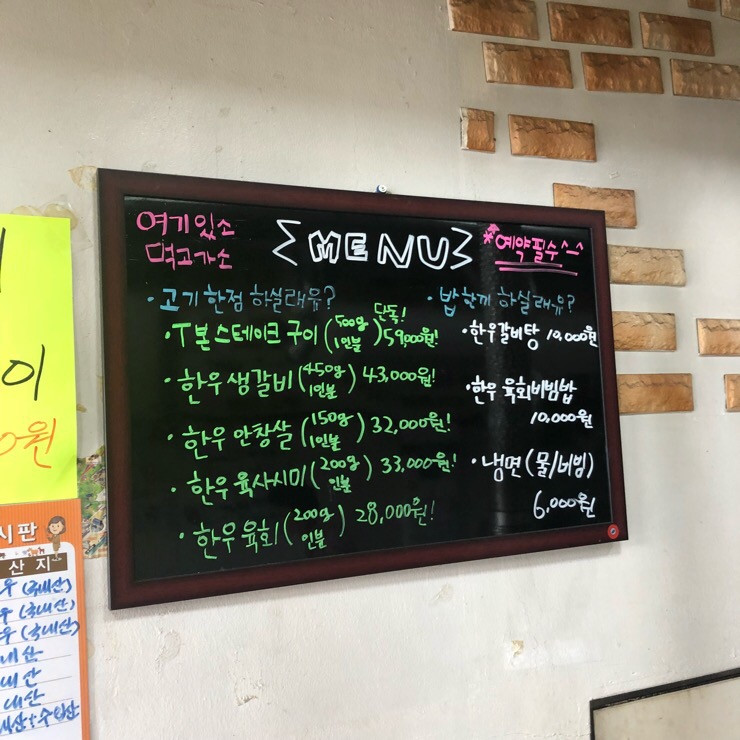 여기있소
먹고가소
MENU
*예약필수^-^
· 고기 한점 하실래유?
· T본스테이크 구이 (500g 1인분) 단독! 59,000원!
· 한우 생갈비 (450g 1인분) 43,000원!
· 한우 안창살 (150g 1인분) 32,000원!
· 한우 육사시미 (200g 인분) 33,000원!
· 한우 육회 (200g 인분) 28,000원!
· 밥한끼 하실래유?
· 한우갈비탕 10,000원
· 한우 육회비빔밥
10,000원
· 냉면 (물/비빔)
6,000원
이
0원
시판
산지
우 (국내산)
우 (국내산)
우 (국내산)
내산
내산
내산